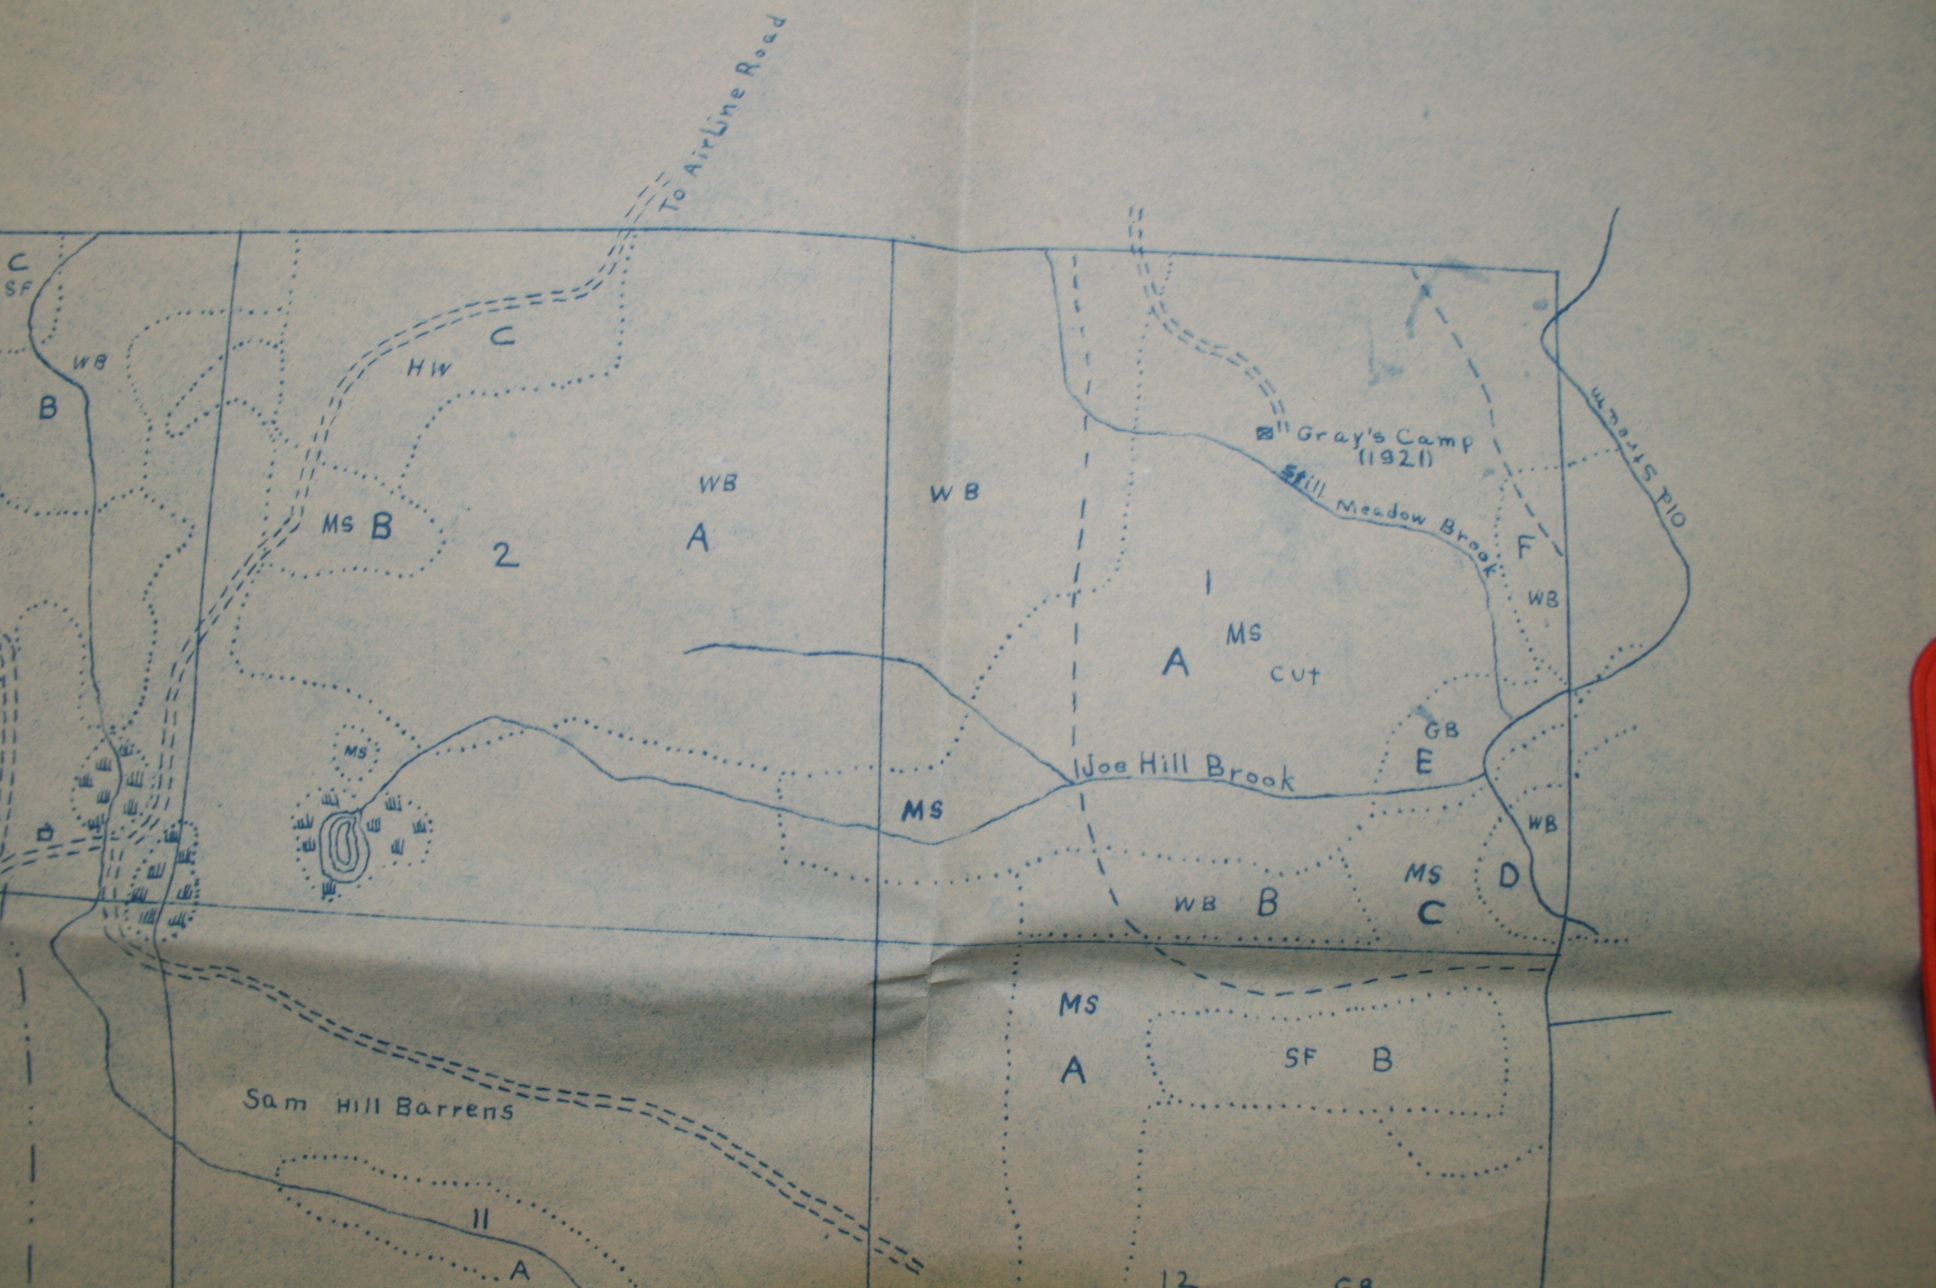 To AirLine Road
C
SF
WB
B
C
HW
MS B
2
WB
A
WB
Gray's Camp
(1921)
Still Meadow Brook
Old Stream
F
WB
1
MS
A
cut
GB
E
Joe Hill Brook
MS
MS
WB
D
MS
C
WB B
MS
A
SF B
Sam Hill Barrens
11
A
12
GB